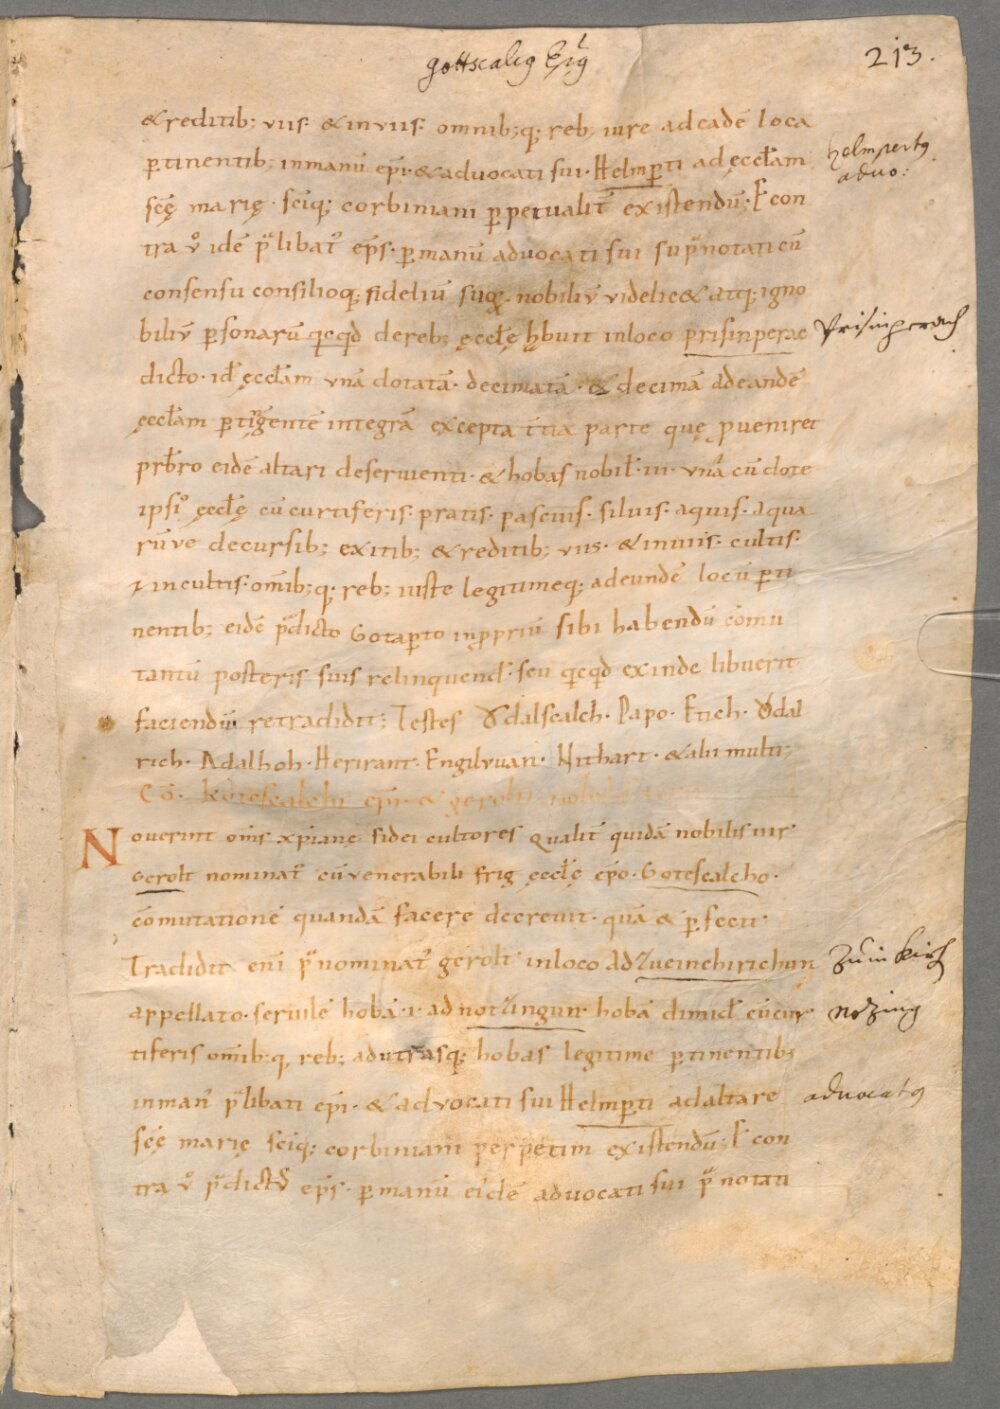 gottscalcg Epg
213.
& reditib; viis· & inviis· omnib;q; reb; iure ad eadē loca
ꝑtinentib; in manū ep̄i· & advocati sui· Helmꝑti ad ęccłam
sc̄ę marię· sc̄iq; corbiniani ꝑpetualit̄ existendū· E con
tra v̊ idē p̄libat᷒ ep̄s· ꝑ manū advocati sui sup̄notati cū
consensu consilioq; fideliū suoꝝ· nobiliū videlic& atq; igno
biliū ꝑsonarū qicqd de reb; ęccłę habuit in loco prisinperac
dicto· id ęccłam unā dotatā· decimatā· & decimā ad eandē
ęccłam ꝑtingentē integrā excepta t̄tia parte quę ꝓveniret
prb̄ro eidē altari deservienti· & hobas nobil· iii· unā cū dote
ipsi᷒ ęccłę cū curtiferis· pratis· pascuis· silvis· aquis· aqua
rūve decursib; exitib; & reditib; viis· & inviis· cultis·
& incultis· om̄ib;q; reb; iuste legitimeq; ad eundē locū ꝑti
nentib; eidē p̄dicto Gotaꝑto in ꝓpriū sibi habendū cōmu
tantū posteris suis relinquend· seu qicqd exinde libuerit
faciendū retradidit; Testes Ŏdalscalch· Papo· Etich· Ŏdal
rich· Adalhoh· Herirant· Engilvuan· Nithart· & alii multi;
Cō· kotescalchi ep̄i· & gerolti nobilis
Noverint om̄s xpianę fidei cultores qualit̄ quidā nobilis vir
Gerolt nominat᷒ cū venerabili frig ęccłę ep̄o· Gotescalcho·
cōmutationē quandā facere decrevit· quā & ꝑfecit·
Tradidit eni p̄nominat᷒ gerolt in loco ad Zueinchirichun
appellato· servilē hobā· i· ad notzingun hobā dimid cū cur
tiferis om̄ib;q; reb; ad utrasq; hobas legitime ꝑtinentib;
in man᷒ p̄libati ep̄i· & advocati sui Helmꝑti ad altare
sc̄ę marię sc̄iq; corbiniani perpetim existendū; E con
tra v̊ p̄dict᷒ ep̄s· ꝑ manū eidē advocati sui p̄notati
helmpertg
advo:
Prisinperach
Zuin kirch
nozing
advocatg